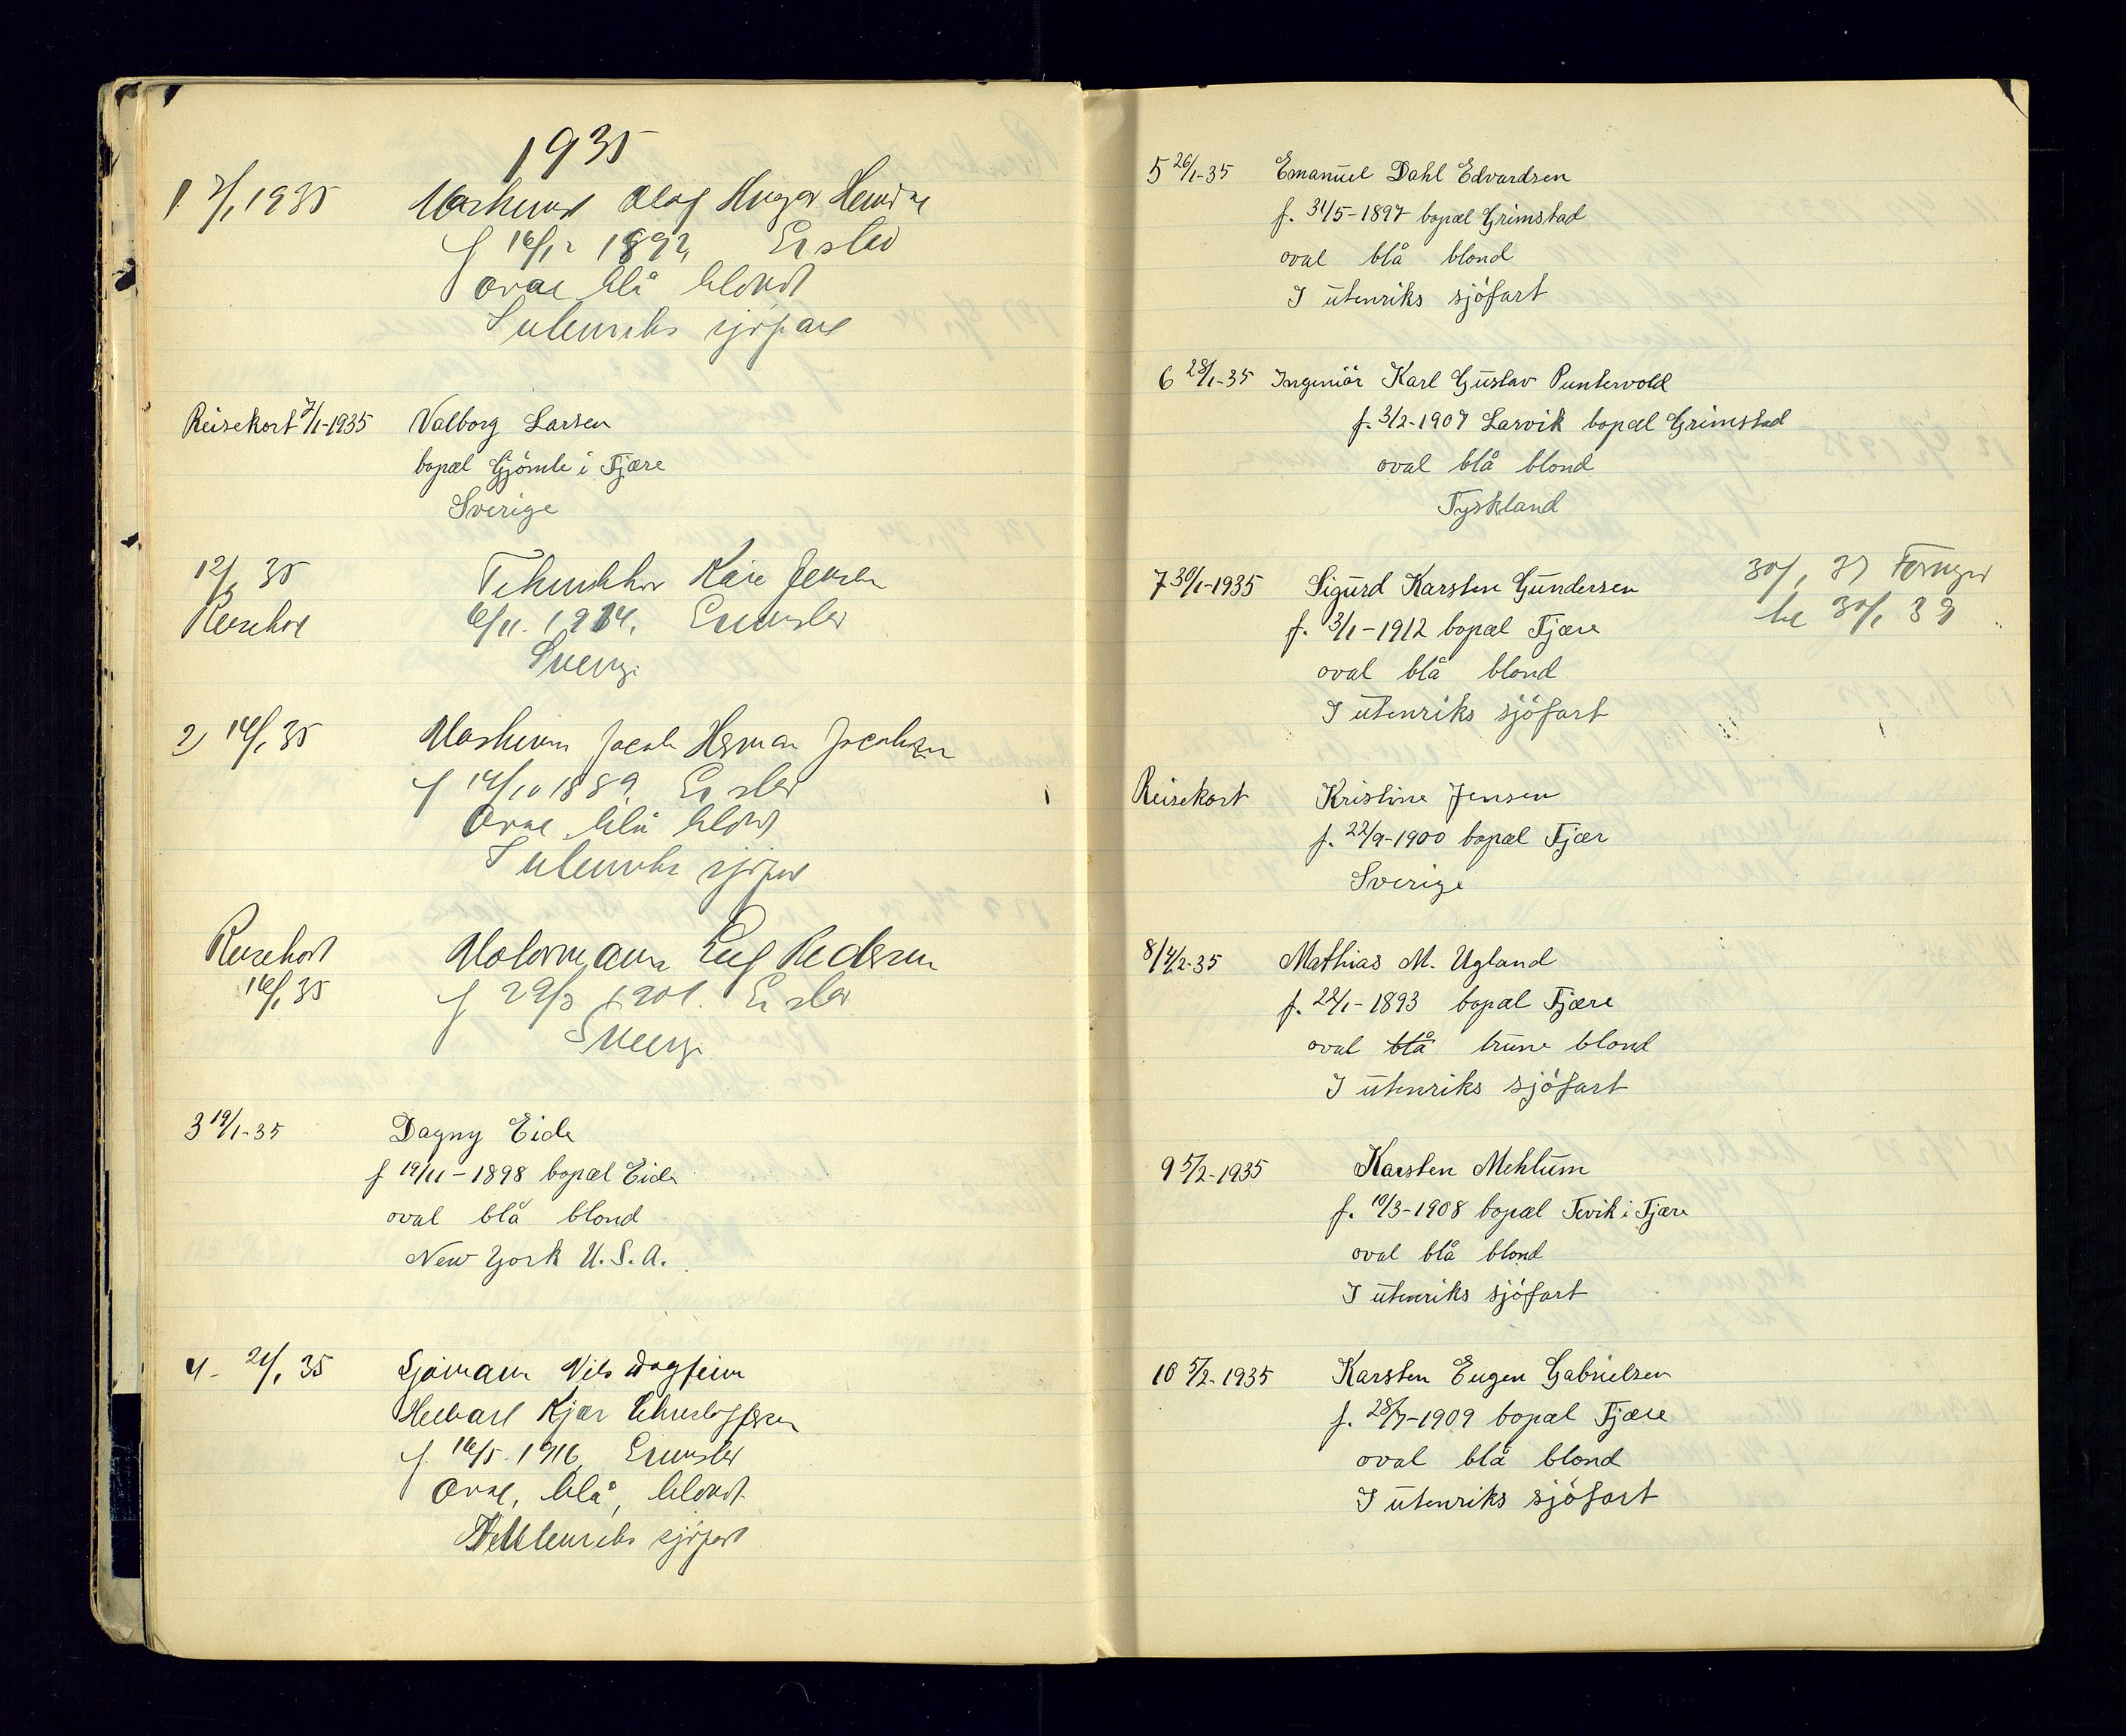 1935
1 7/1 1935 Maskinist Olaf Hugo
f 16/12 1892
oval blå blond
I utenriks sjøfart
Reisekort 7/1-1935 Valborg Larsen
bopæl Gjömle i Fjære
Sverige
12/1 35 Kåre Jensen
Reisekort 6/11. 1914. Grimstad
Sverige
2) 14/1 35 Maskinist Jacob Herman Jacobsen
f 14/10 1889
Oval blå blond
I utenriks sjøfart
Reisekort Motormann Leif Pedersen
16/1 35 f 29/3 1901.
Sverige
3 19/1-35 Dagny Eide
f 19/11-1898 bopæl Eide
oval blå blond
New York U.S.A.
4- 21/1 35 Sjömann Nils Dagfinn
Kjær Christoffersen
f. 16/5. 1916, Grimstad
Oval, blå, blond
utenriks sjøfart
5 26/1-35 Emanuel Dahl Edvardsen
f. 31/5-1897 bopæl Grimstad
oval blå blond
I utenriks sjöfart
6 28/1-35 Ingeniör Karl Gustav Puntervold
f. 3/2-1907 Larvik bopæl Grimstad
oval blå blond
Tyskland
7 30/1-1935 Sigurd Karsten Gundersen 30/1 37 Fornyet
f. 3/1-1912 bopæl Fjære til 30/1 39
oval blå blond
I utenriks sjöfart
Reisekort Kristine Jensen
f. 22/9-1900 bopæl Fjær
Sverige
8/ 4/2-35 Mathias M. Ugland
f. 22/1-1893 bopæl Fjære
oval blå brune blond
I utenriks sjöfart
9 5/2-1935 Karsten Mehlum
f. 10/3-1908 bopæl Fevik i Fjære
oval blå blond
I utenriks sjöfart
10 5/2-1935 Karsten Eugen Gabrielsen
f. 28/7-1909 bopæl Fjære
oval blå blond
I utenriks sjöfart